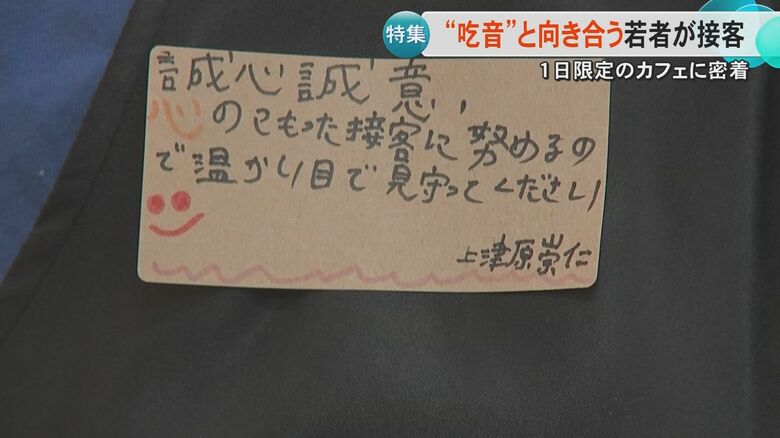 特集
“吃音”と向き合う若者が接客
1日限定のカフェに密着
誠心誠意、
心のこもった接客に努めるの
で温かい目で見守ってください
上津原崇仁